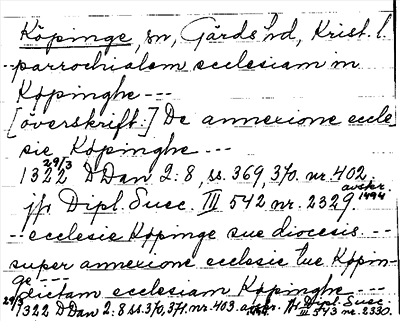 Köpinge, sn, Gärds hd, Krist. l.
--parrochialem ecclesiam in
Køpinghe ---
[överskrift:] De annexione eccle
sie Køpinghe ---
1322 29/3 DDan 2:8, ss. 369, 370. nr. 402.
jfr Dipl. Suec. III 542 nr. 2329. avskr. 1494
-- ecclesie Køpinge sue diocesis. --
super annexione ecclesie tue Køpin-
ge --- dictam ecclesiam Køpinghe --
29/3 1322 DDan 2:8 ss. 370, 371. nr. 403. jfr Dipl. Suec.
III 543 nr. 2330.